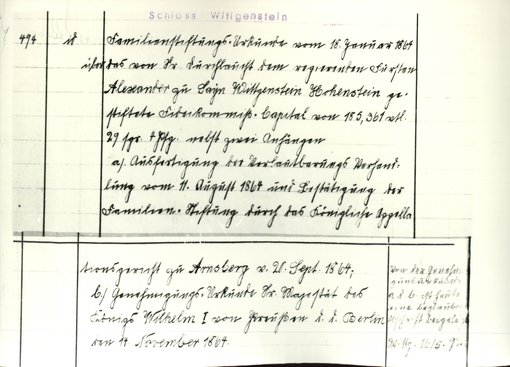 Schloss Wittgenstein
494 d Familienstiftungs-Urkunde vom 18. Januar 1864
über das von Sr. Durchlaucht dem regierenden Fürsten
Alexander zu Sayn Wittgenstein Hohenstein ge-
stiftete Fideikommiß-Capital von 185,361 rtl.
29 sgr. 4 Pfg. nebst zwei Anhängen
a) Ausfertigung der Verlautbarungs Verhand-
lung vom 11. August 1864 und Bestätigung der
Familien-Stiftung durch das Königliche Appella
tionsgericht zu Arnsberg v. 21. Sept. 1864;
b) Genehmigungs-Urkunde Sr. Majestät des
Königs Wilhelm I von Preußen d. d. Berlin
den 14 November 1864.
Von der Genehm.
a d b ist heute
eine